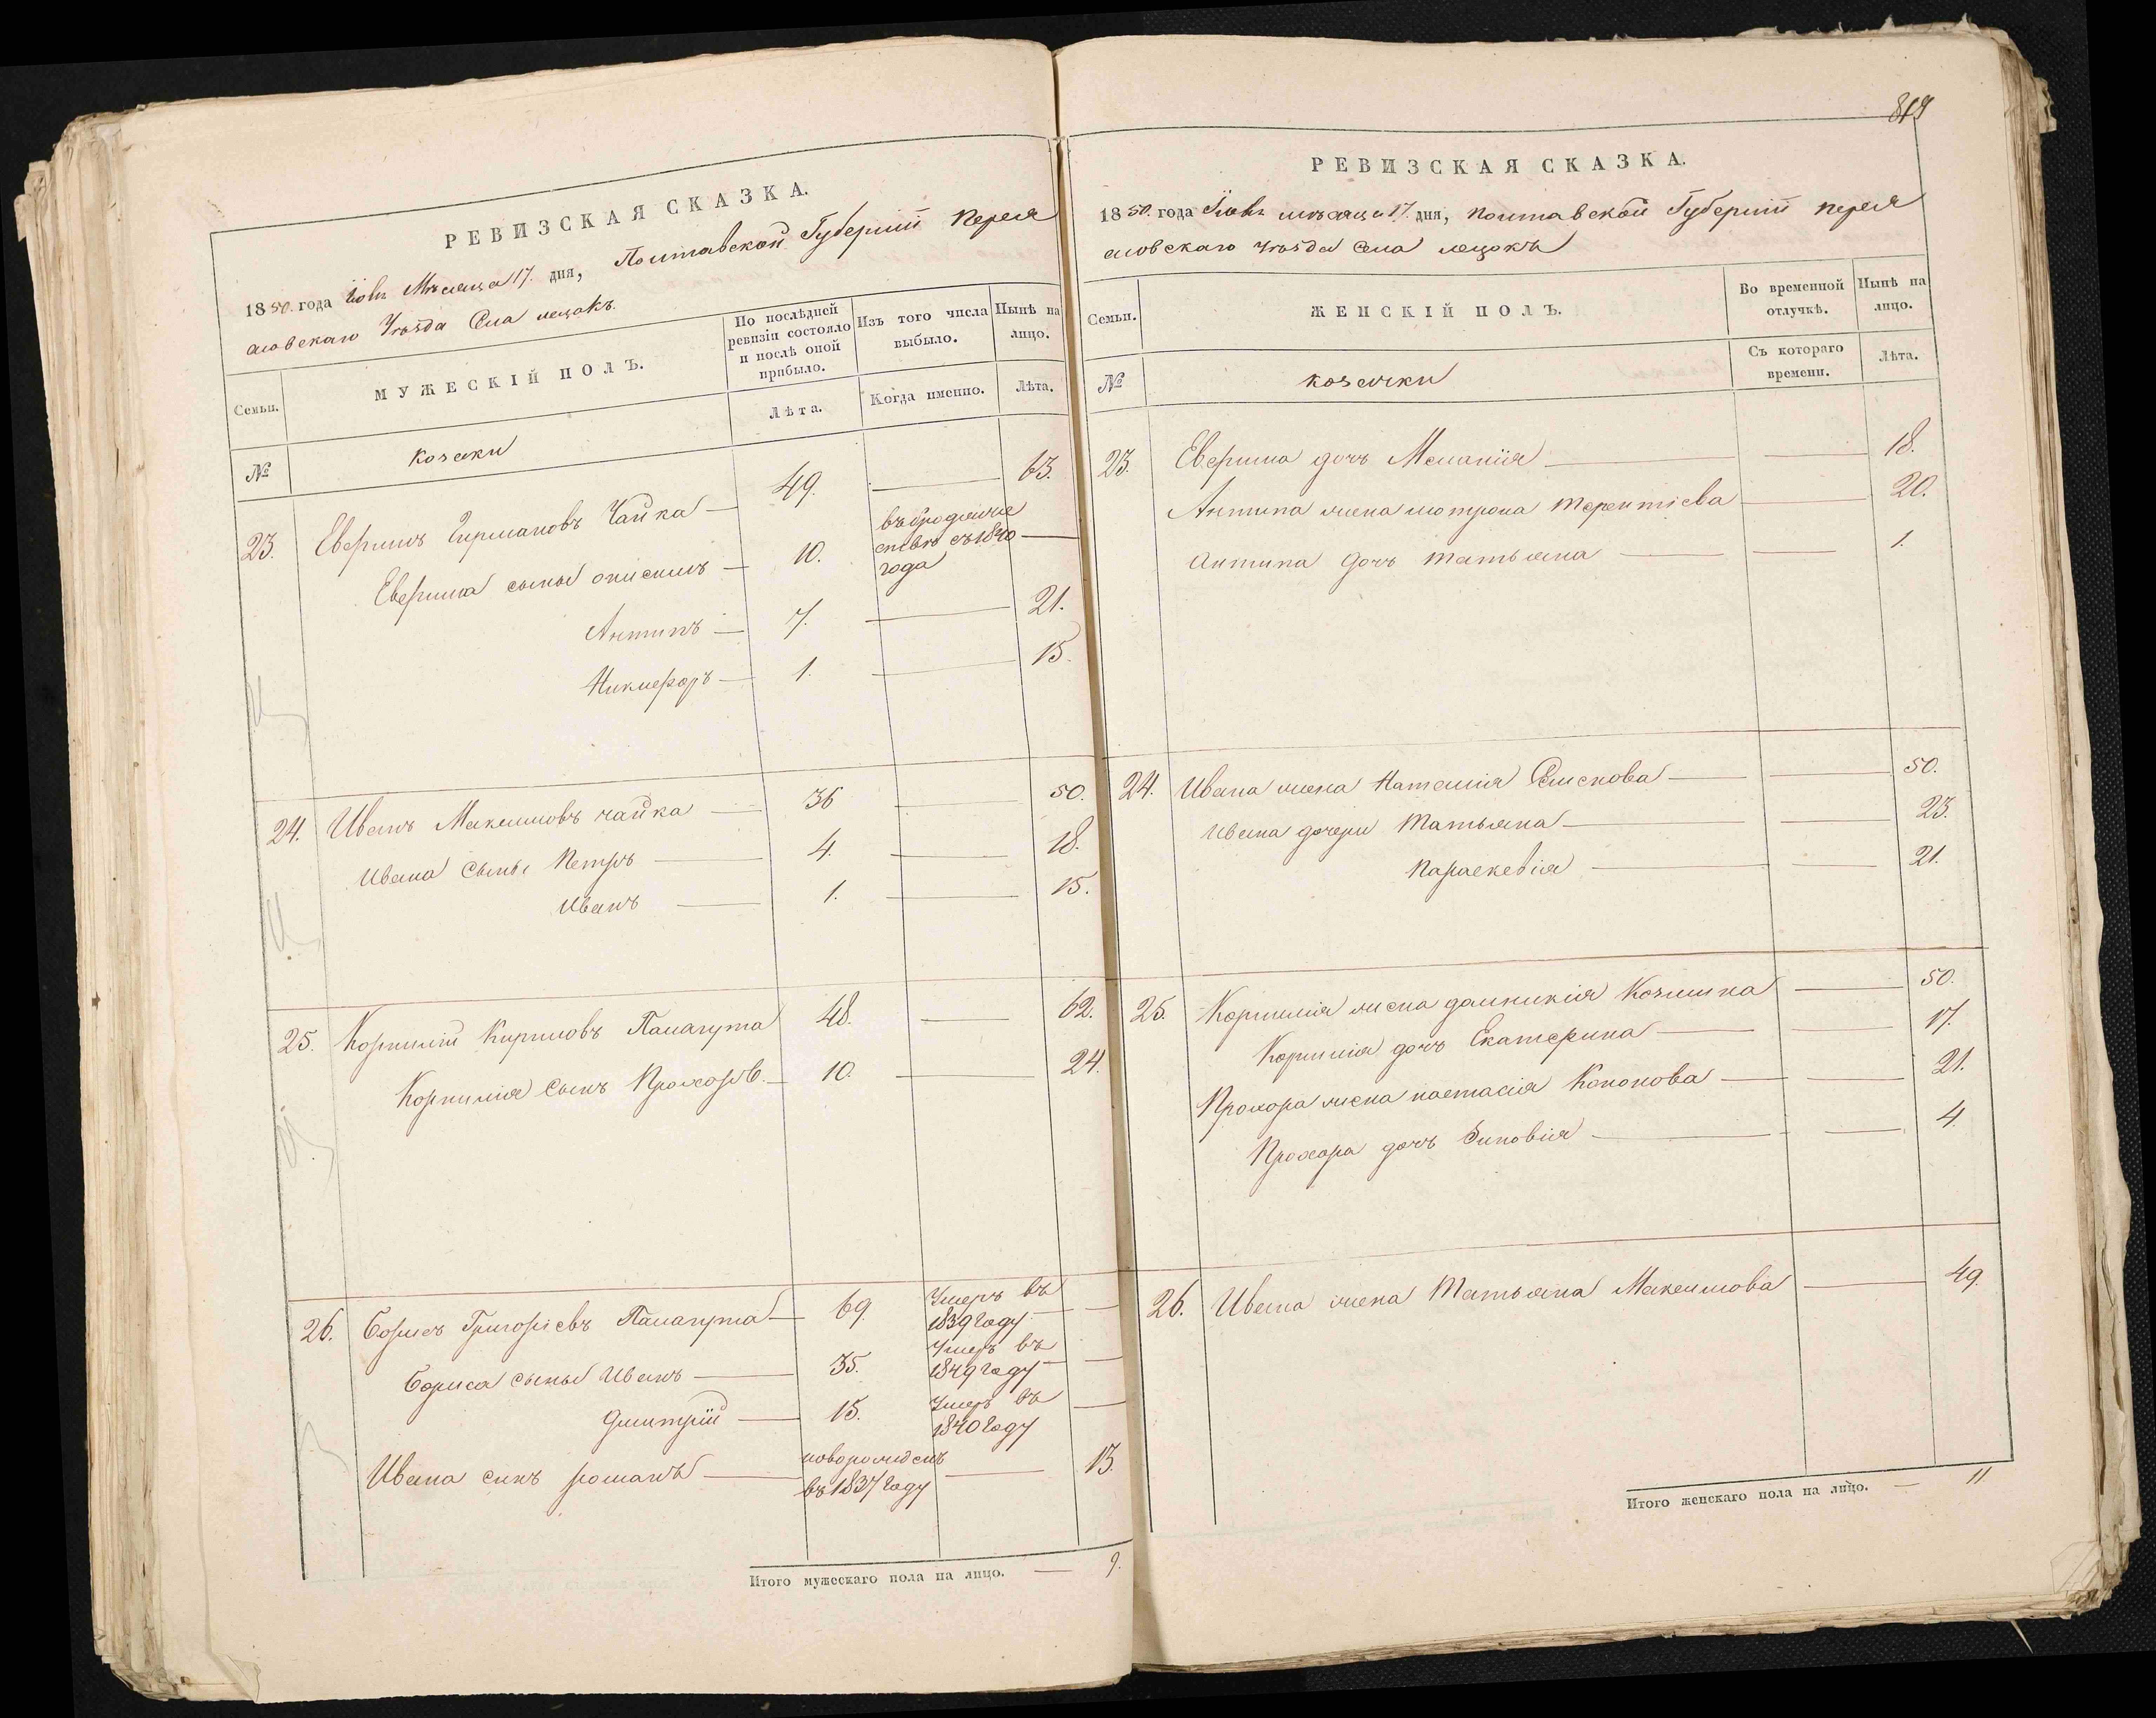 РЕВИЗСКАЯ СКАЗКА.
1850. года Іюня Мѣсяца 17. дня, Полтавской Губерніи Перея
словскаго Уѣзда Села
Семьи.
МУЖЕСКІЙ ПОЛЪ.
По послѣдней ревизіи состояло и послѣ оной прибыло.
Изъ того числа выбыло.
Нынѣ на лицо.
Лѣта.
Когда именно.
Лѣта.
№
козаки
23. Чайка — 49. — 63.
сыны — 10. съ 1840 года —
Антипъ — 7. — 21.
Никифоръ — 1. — 15.
24. Иванъ Максимовъ чайка — 36 — 50.
Ивана сыны Петръ — 4. — 18.
Иванъ — 1. — 15.
25. Корнилій Кириловъ 48. — 62.
Корнилія сынъ Прохоръ. — 10. — 24.
26. Борисъ Григорьевъ — 69. Умеръ въ 1839 году — —
Бориса сыны Иванъ — 35. Умеръ въ 1849 году — —
Дмитрій — 15. Умеръ въ 1840 году —
Ивана синъ романъ — новорожденъ въ 1837 году — 13.
Итого мужескаго пола на лицо. — 9.
819
РЕВИЗСКАЯ СКАЗКА.
1850. года Іюня мѣсяца 17. дня, полтавской Губерніи перея
словскаго уѣзда Села
Семьи.
ЖЕНСКІЙ ПОЛЪ.
Во временной отлучкѣ.
Нынѣ на лицо.
№
козачки
Съ котораго времени.
Лѣта.
23. дочь Меланія — — 18.
Антипа жена мотрона терентіева — 20.
антипа дочь татьяна — — 1.
24. Ивана жена Наталія — — 50.
Ивана дочери татьяна — — 23.
параскевія — — 21.
25. Корнилія жена — 50.
Корнилія дочь Екатерина — — 17.
Прохора жена настасія Кононова — — 21.
Прохора дочь Зиновія — — 4
26. Ивана жена татьяна Максимова — 49.
Итого женскаго пола на лицо. — 11